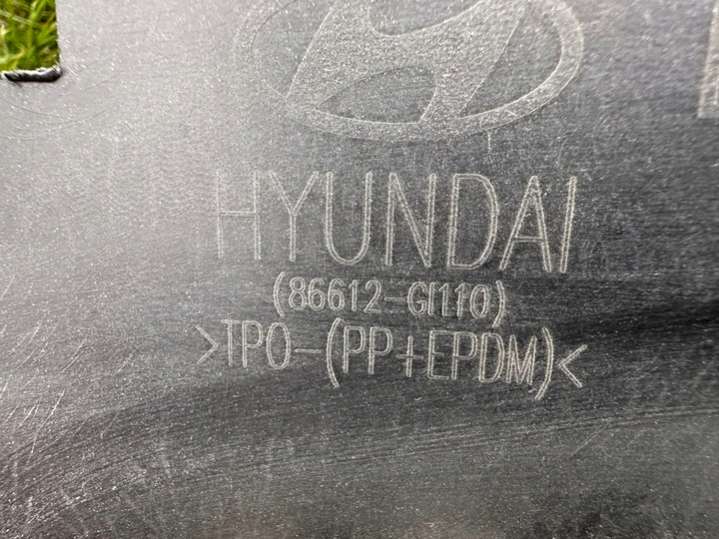 HYUNDAI
(86612-GI110)
>TPO-(PP+EPDM)<